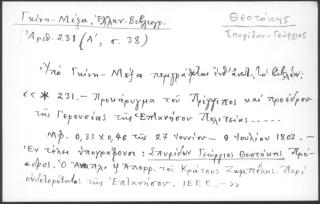 Γκίνη - Μέξα, Ἑλλην. Βιβλιογρ.
Ἀριθ. 231 (Α', σ. 38)
Θεοτόκης
Σπυρίδων - Γεώργιος
Ὑπὸ Γκίνη - Μέξα περιγράφεται τὸ βιβλίον:
«* 231. — Προκήρυγμα τοῦ Πρίγγιπος καὶ προέδρου
τῆς Γερουσίας τῆς Ἑπτανήσου Πολιτείας.....
Μφ. 0,33 × 0,46 τῆς 27 Ἰουνίου — 9 Ἰουλίου 1802. —
Ἐν τέλει ὑπογράφουσι: Σπυρίδων Γεώργιος Θεοτόκης Πρό-
εδρος. Ὁ Ἀπόρρ. τοῦ Κράτους Ζαμπέλης. Περὶ
οὐδετερότητος τῆς Ἑπτανήσου. ΙΕΕΕ. — »